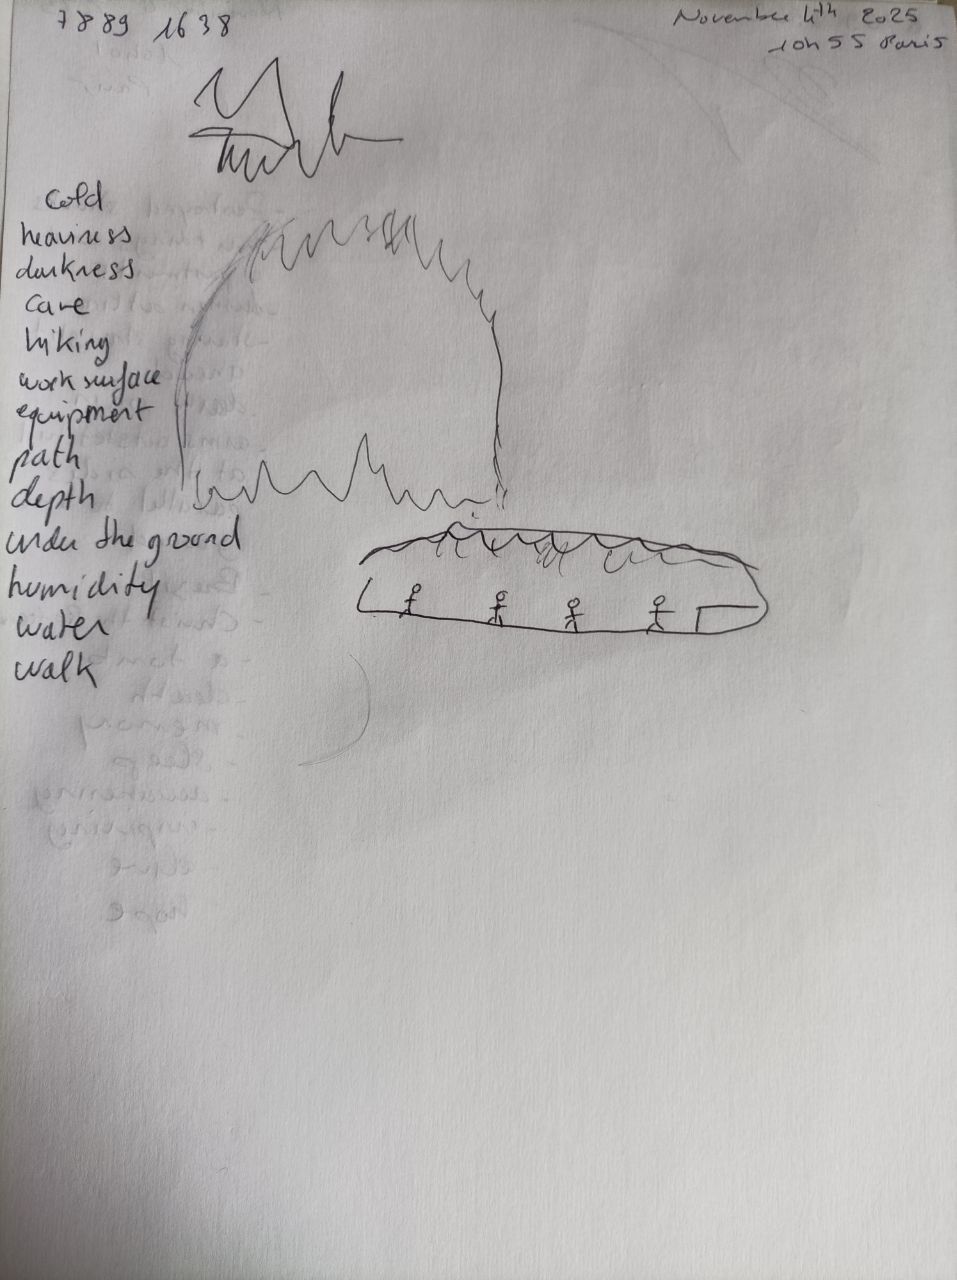 7889 1638
November 4th 2025
10h55 Paris
cold
heaviness
darkness
cave
hiking
work surface
equipment
path
depth
under the ground
humidity
water
walk